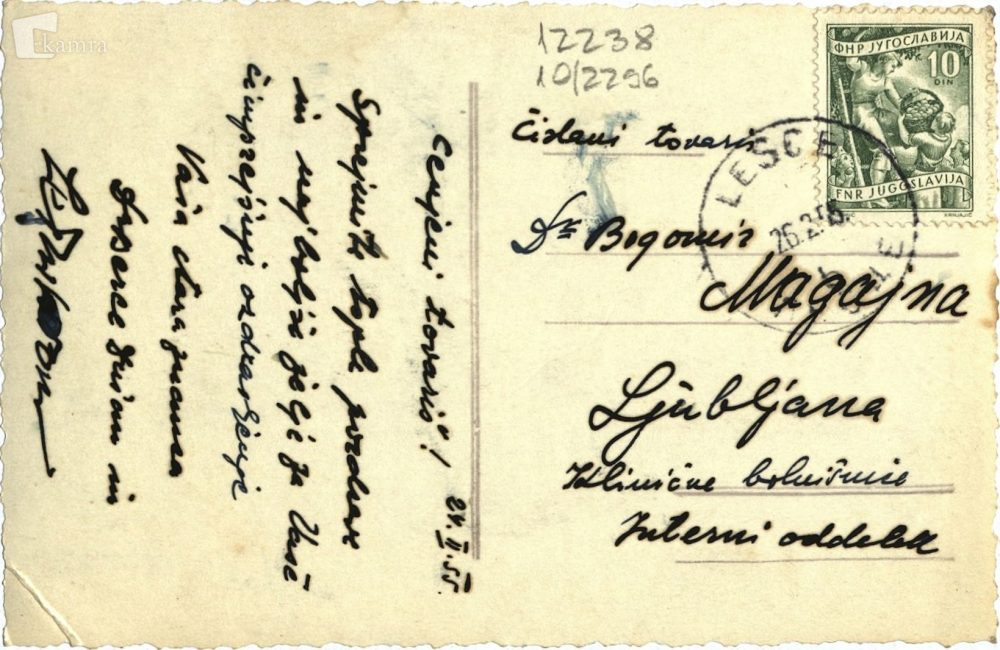 kamra
12238
10/2296
ФНР ЈУГОСЛАВИЈА
10
DIN
FNR JUGOSLAVIJA
LESCE
26.2.55
Čislani tovariš
Dr Bogomir
Magajna
Ljubljana
Klinične bolnišnice
Interni oddelek
24.II.55.
Cenjeni tovariš!
Sprejmite tople pozdrave
in najboljše želje za Vaše
čimprejšnje ozdravljenje
Vaša stara znanca
in